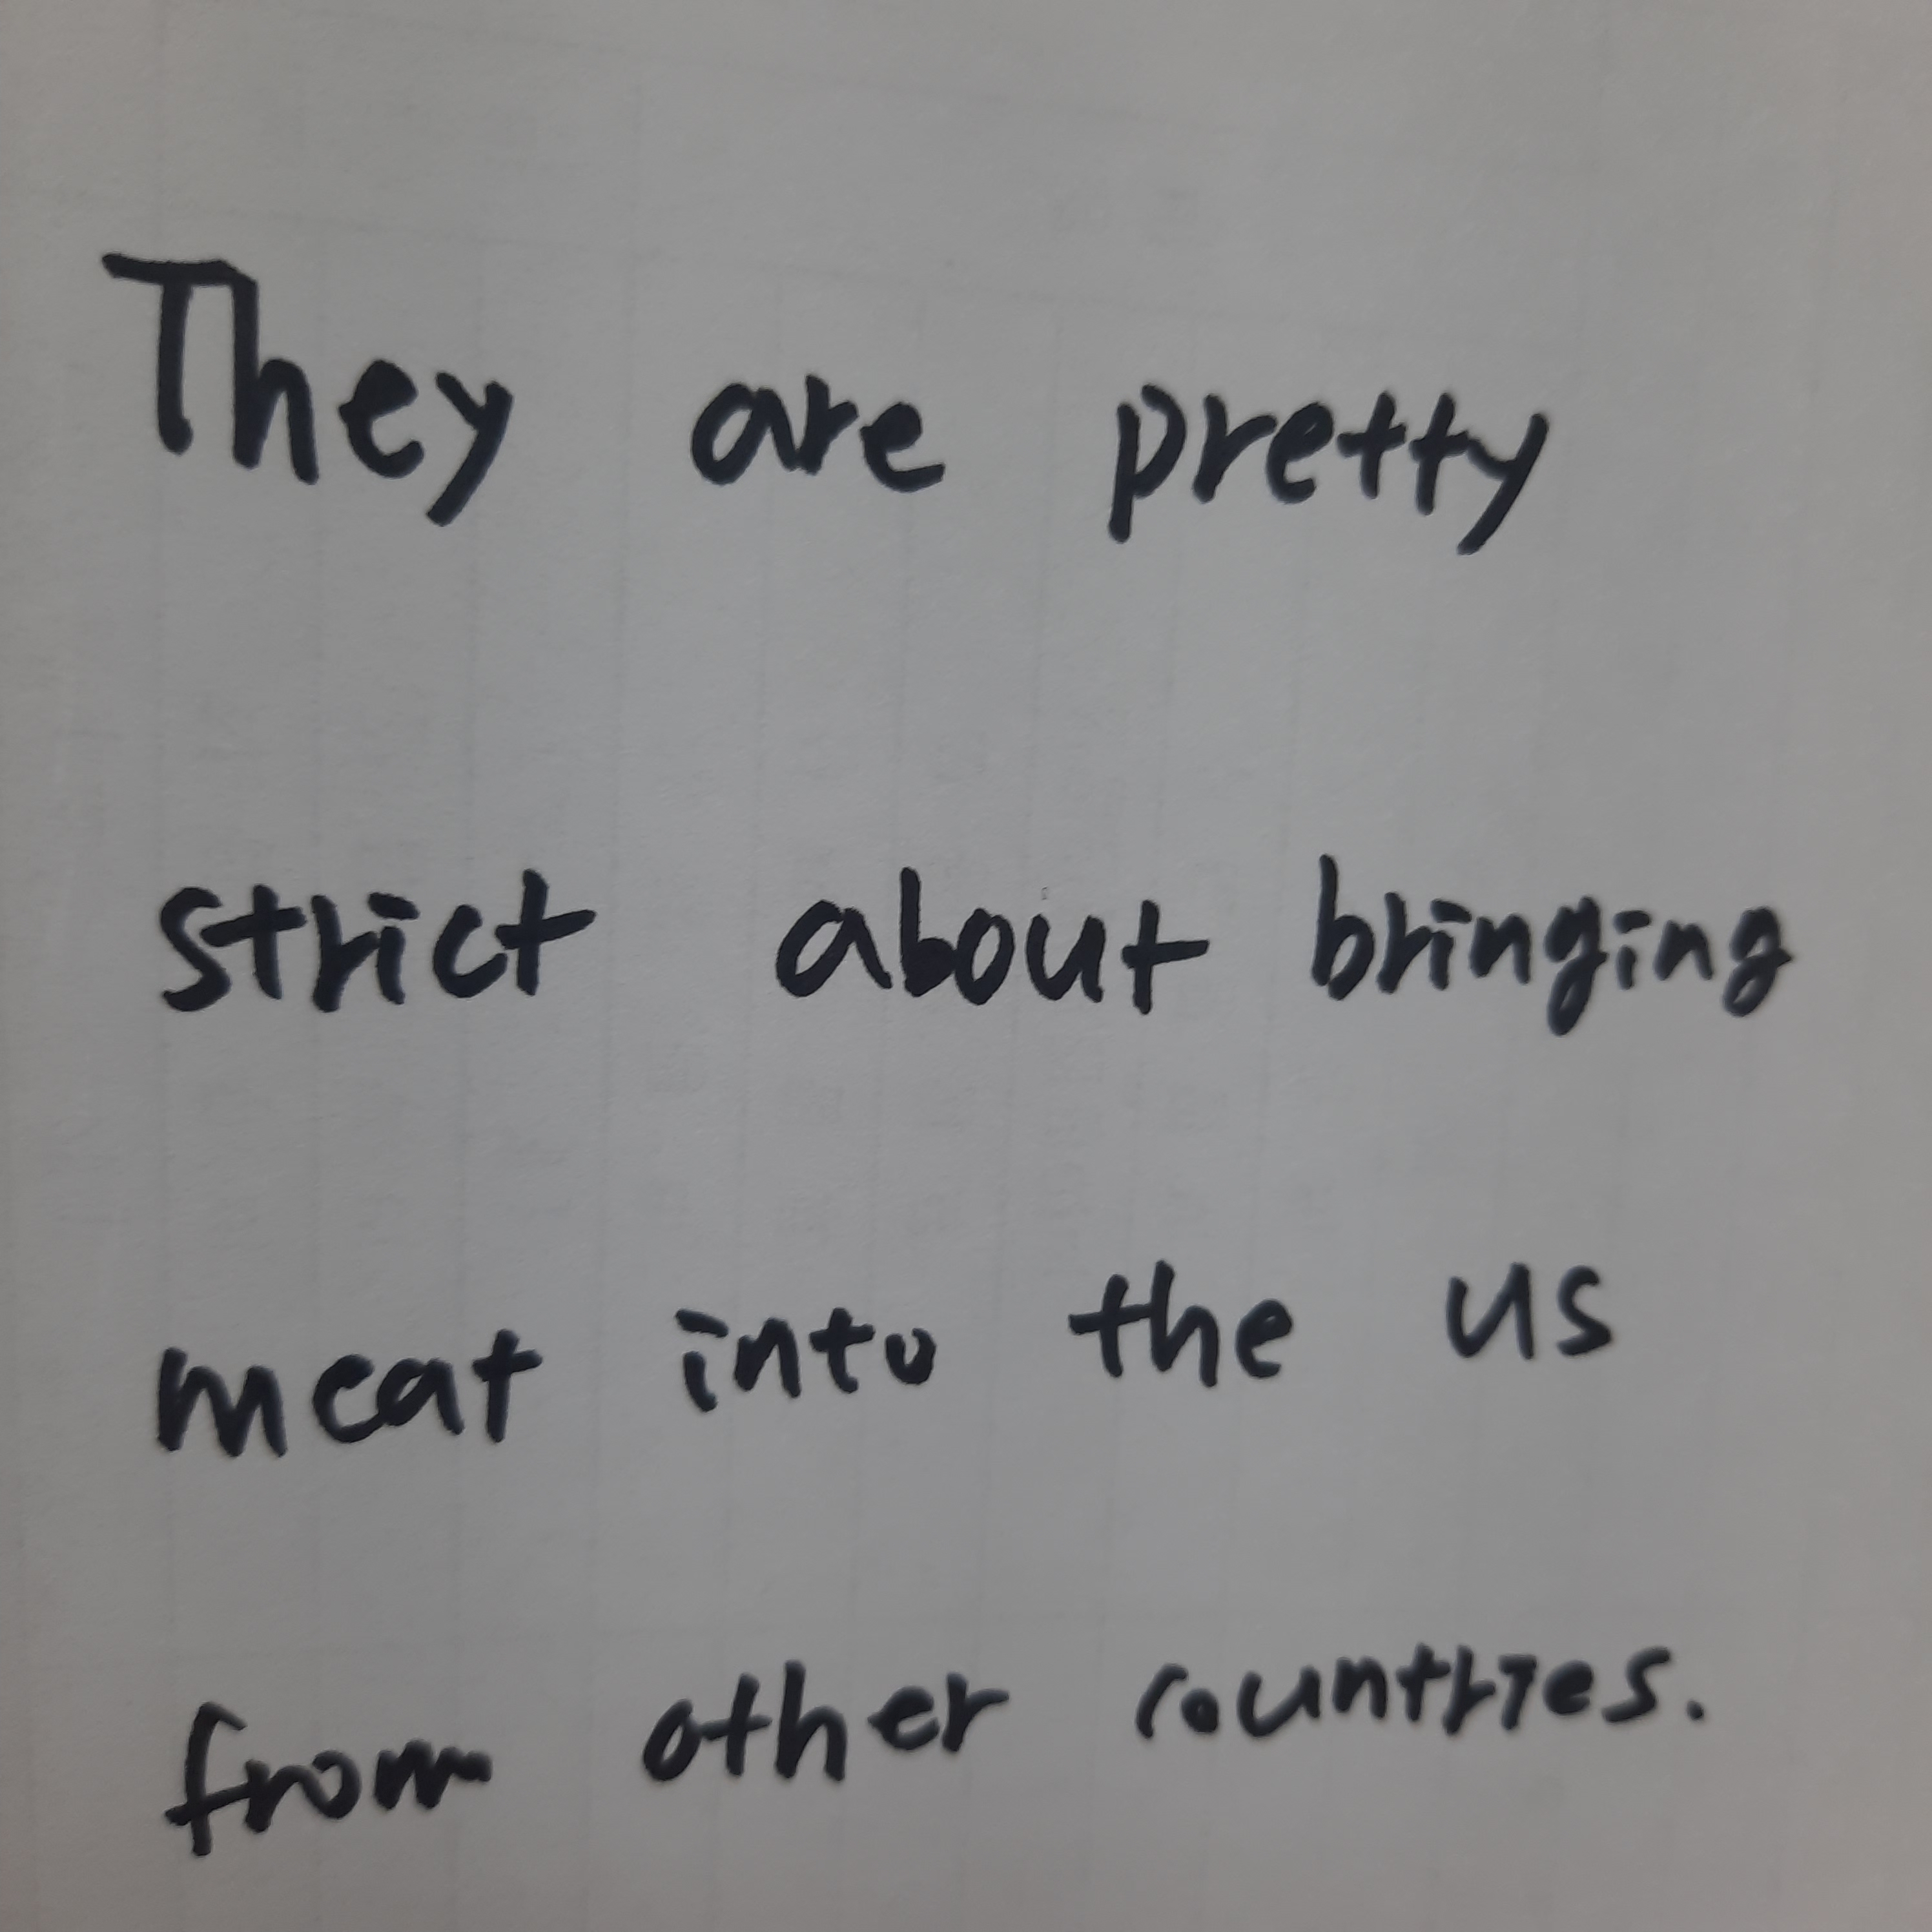 They are pretty
strict about bringing
meat into the US
from other countries.